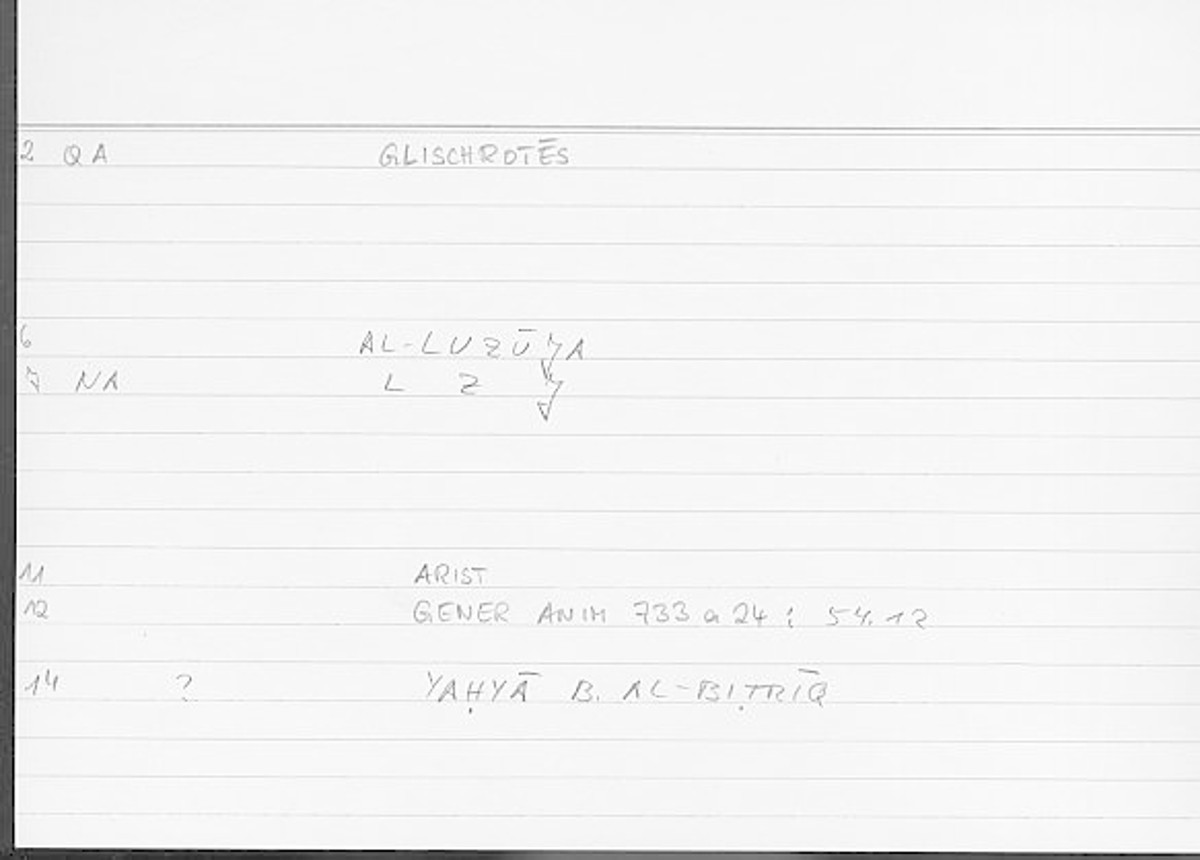 2 QA GLISCHROTĒS
6 AL-LUZŪǦA
7 NA L Z Ǧ
11 ARIST
12 GENER ANIM 733 a 24 ; 54.12
14 ? YAḤYĀ B. AL-BIṬRĪQ